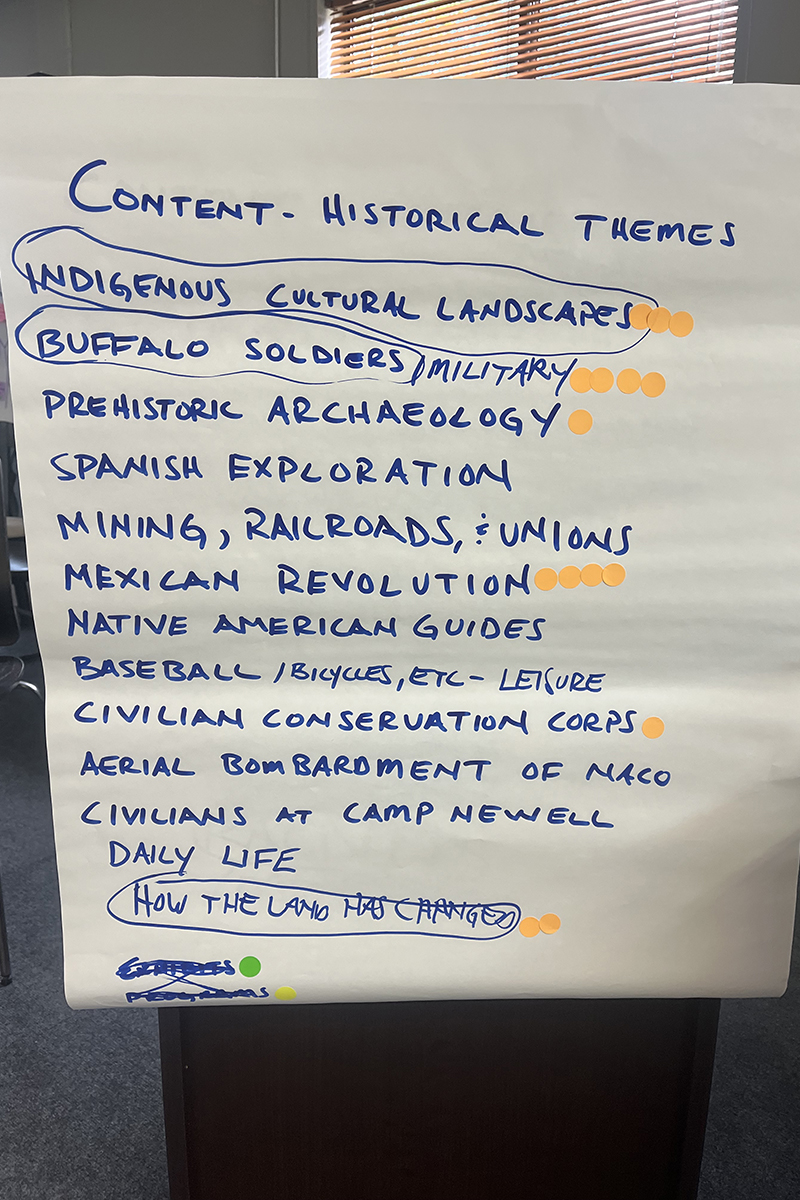 CONTENT - HISTORICAL THEMES
INDIGENOUS CULTURAL LANDSCAPES
BUFFALO SOLDIERS/MILITARY
PREHISTORIC ARCHAEOLOGY
SPANISH EXPLORATION
MINING, RAILROADS, & UNIONS
MEXICAN REVOLUTION
NATIVE AMERICAN GUIDES
BASEBALL/BICYCLES, ETC - LEISURE
CIVILIAN CONSERVATION CORPS
AERIAL BOMBARDMENT OF NACO
CIVILIANS AT CAMP NEWELL
DAILY LIFE
HOW THE LAND HAS CHANGED
PROGRAMS